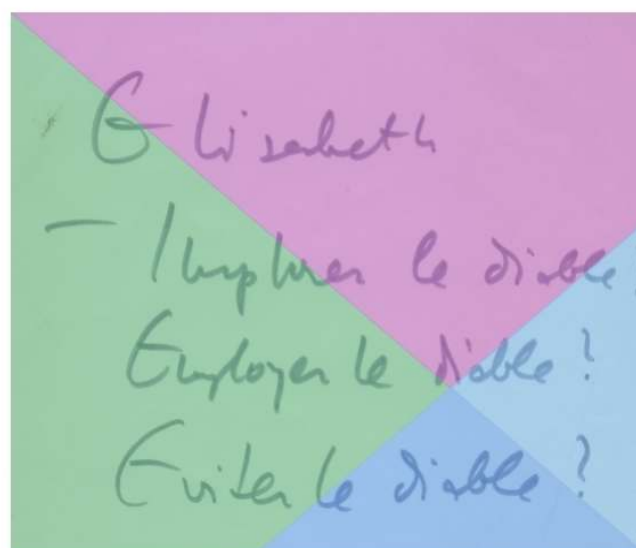 Elisabeth
— Implorer le diable
Employer le diable ?
Eviter le diable ?